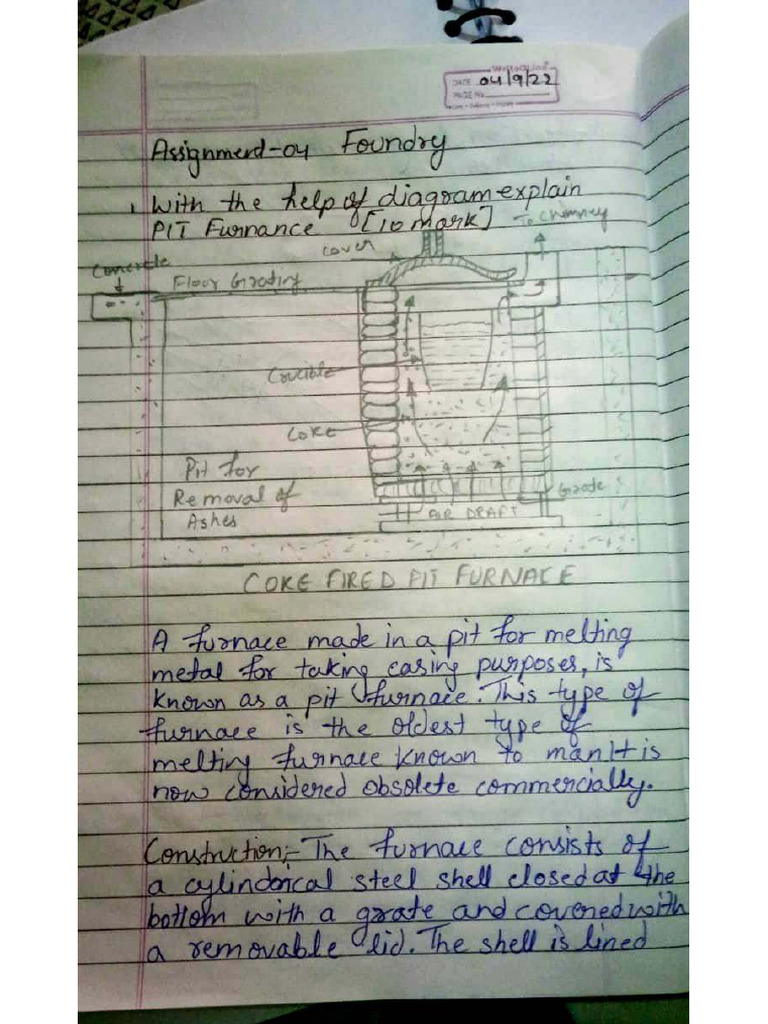 DATE 04/9/22
PAGE No.
Assignment-04 Foundry
1. With the help of diagram explain
PIT Furnance [10 mark]
To chimney
Cover
Concrete
Floor Grating
Crucible
Coke
Pit for
Removal of
Ashes
Grade
AIR DRAFT
COKE FIRED PIT FURNACE
A furnace made in a pit for melting
metal for taking casing purposes, is
known as a pit furnace. This type of
furnace is the oldest type of
melting furnace known to man It is
now considered obsolete commercially.
Construction:- The furnace consists of
a cylindorical steel shell closed at the
bottom with a grate and covered with
a removable lid. The shell is lined